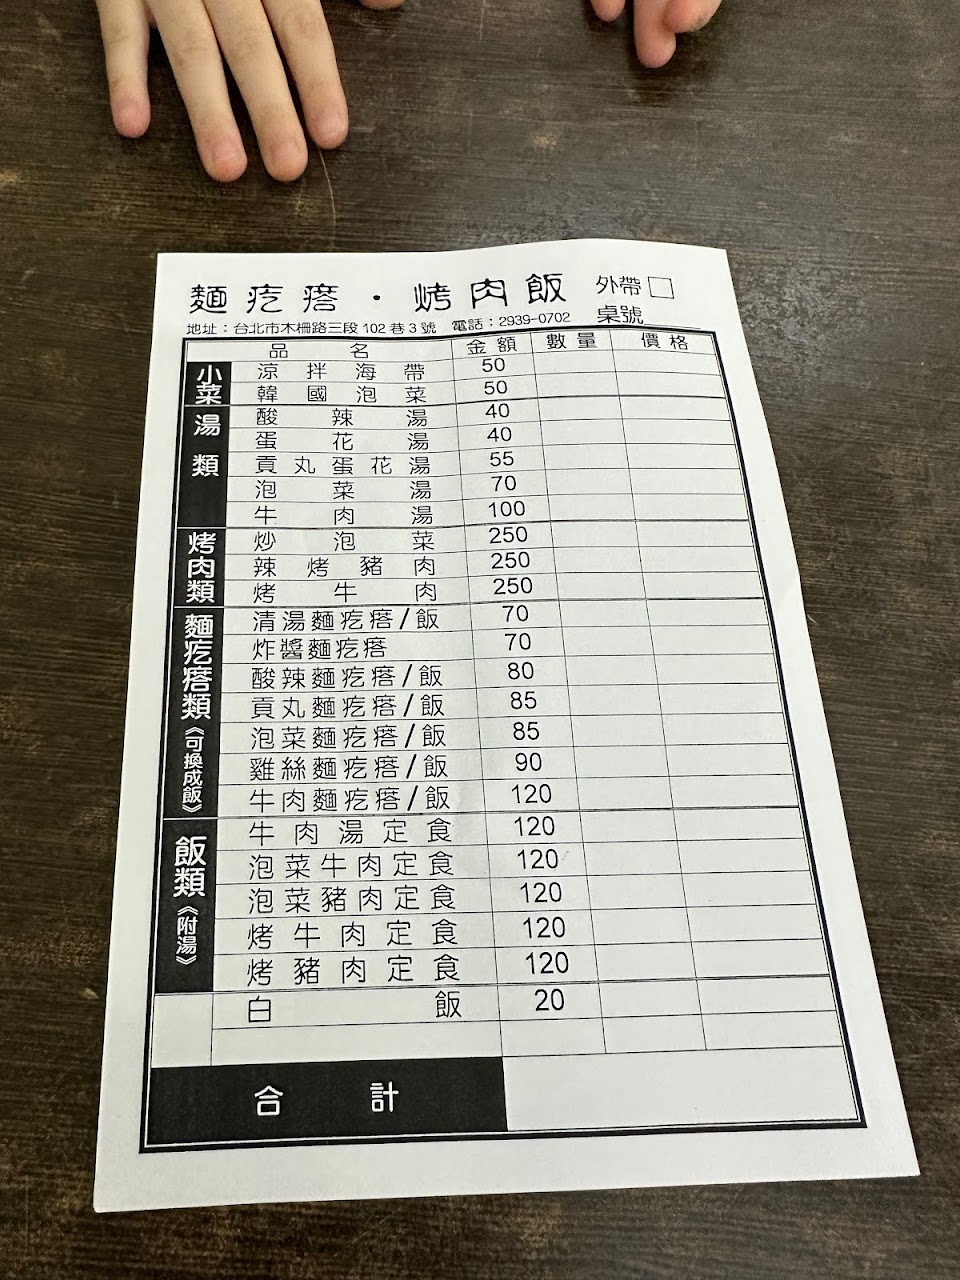 麵疙瘩·烤肉飯 外帶□
地址：台北市木柵路三段102巷3號 電話：2939-0702 桌號
品名 金額 數量 價格
小菜
涼拌海帶 50
韓國泡菜 50
湯類
酸辣湯 40
蛋花湯 40
貢丸蛋花湯 55
泡菜湯 70
牛肉湯 100
烤肉類
炒泡菜 250
辣烤豬肉 250
烤牛肉 250
麵疙瘩類《可換成飯》
清湯麵疙瘩/飯 70
炸醬麵疙瘩 70
酸辣麵疙瘩/飯 80
貢丸麵疙瘩/飯 85
泡菜麵疙瘩/飯 85
雞絲麵疙瘩/飯 90
牛肉麵疙瘩/飯 120
飯類《附湯》
牛肉湯定食 120
泡菜牛肉定食 120
泡菜豬肉定食 120
烤牛肉定食 120
烤豬肉定食 120
白飯 20
合計